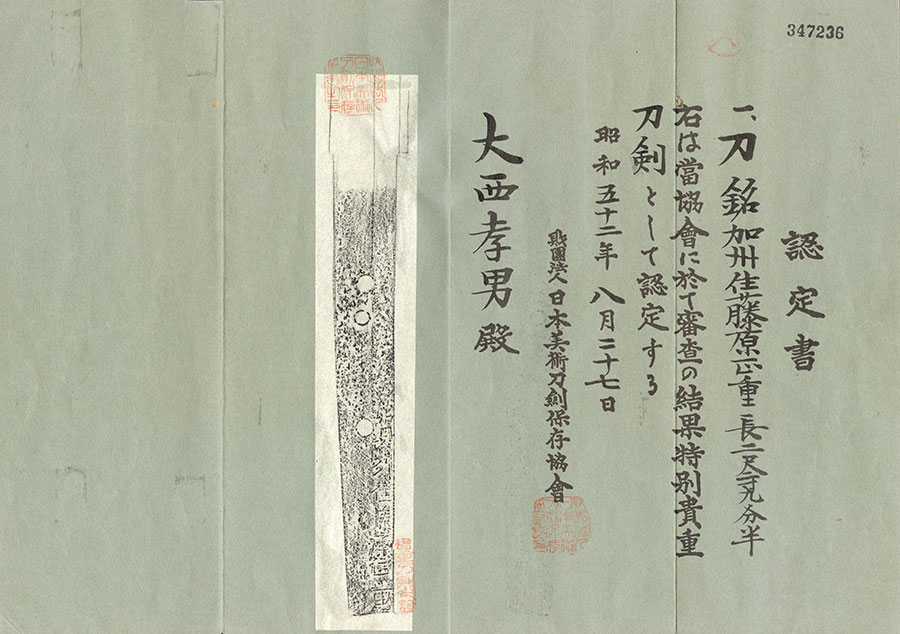 347236
認定書
一、刀 銘加州住藤原正重 長二尺
右は當協會に於て審査の結果特別貴重
刀劍として認定する
昭和五十二年八月二十七日
財團法人日本美術刀劍保存協會
大西孝男殿